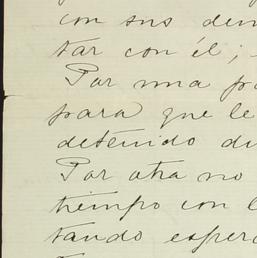 con sus den
tar con él;
Por una pa
para que le
detenido du
Por otra no
tiempo con l
tando espera